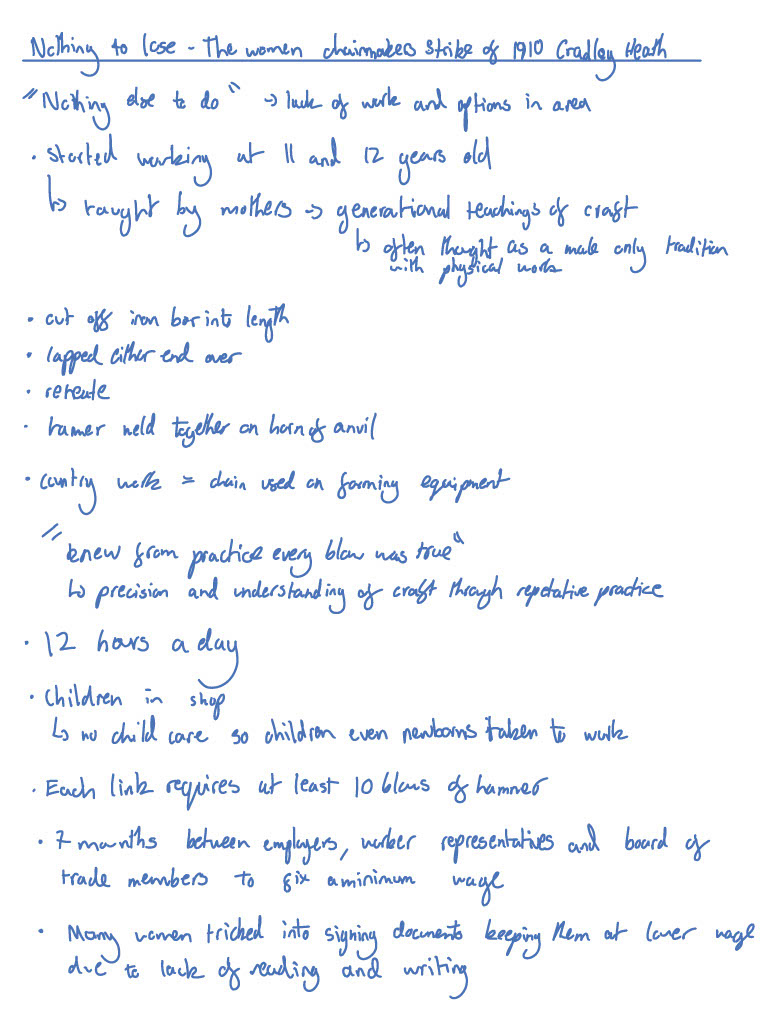 Nothing to lose - The women chainmakers strike of 1910 Cradley Heath
"Nothing else to do" → lack of work and options in area
• Started working at 11 and 12 years old
↳ taught by mothers → generational teachings of craft
↳ often thought as a male only tradition
with physical work
• cut off iron bar into length
• lapped either end over
• reheate
• hamer weld together on horn of anvil
• country work = chain used on farming equipment
"knew from practice every blow was true"
↳ precision and understanding of craft through repetative practice
• 12 hours a day
• Children in shop
↳ no child care so children even newborns taken to work
• Each link requires at least 10 blows of hammer
• 7 months between employers, worker representatives and board of
trade members to fix a minimum wage
• Many women tricked into signing documents keeping them at lower wage
due to lack of reading and writing